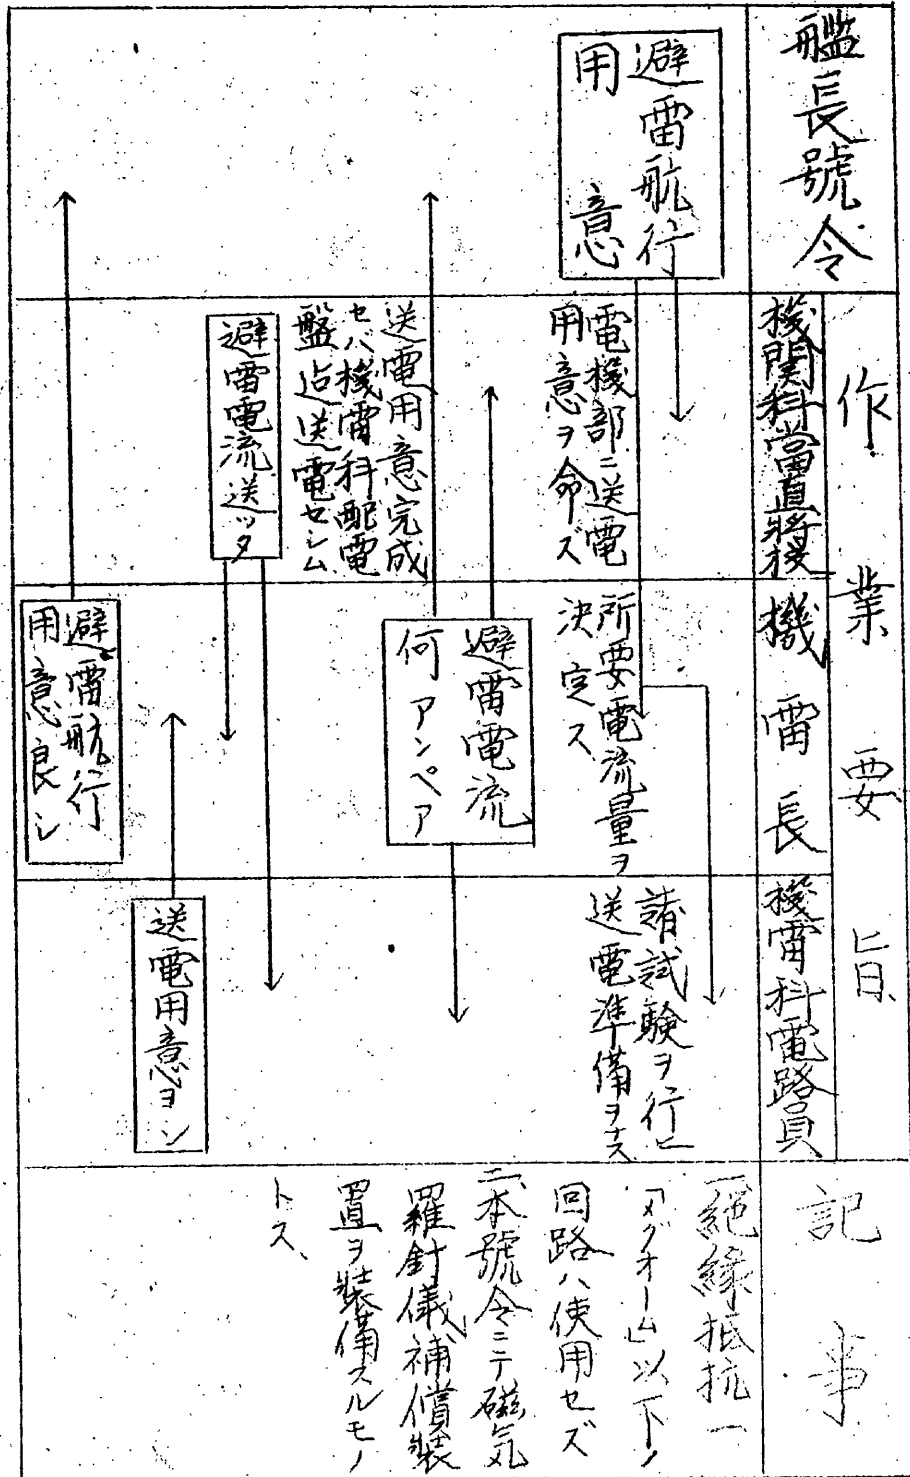 艦長號令
作業要旨
機関科當直將校
機雷長
機雷科電路員
記事
避雷航行
用意
電機部ニ送電
用意ヲ命ズ
所要電流量ヲ
決定ス
諸試驗ヲ行ヒ
送電準備ヲナス
避雷電流
何アンペア
送電用意完成
セバ機雷科配電
盤迠送電セシム
避雷電流送ッタ
送電用意ヨシ
避雷航行
用意良シ
一、絕緣抵抗一
「メグオーム」以下ノ
回路ハ使用セズ
二、本號令ニテ磁気
羅針儀補償装
置ヲ装備スルモノ
トス、